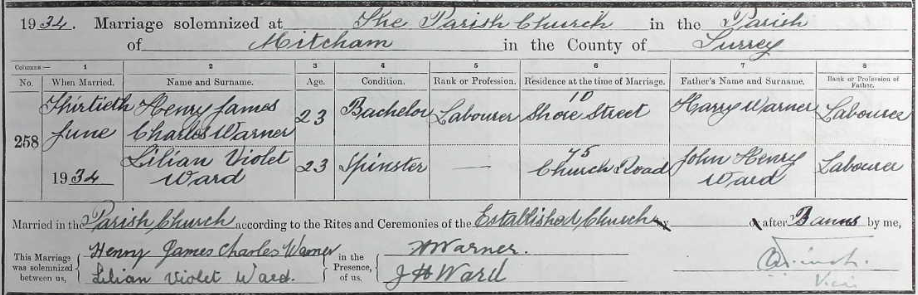 1934. Marriage solemnized at The Parish Church in the Parish
of Mitcham in the County of Surrey
Columns:— 1 2 3 4 5 6 7 8
No. When Married. Name and Surname. Age. Condition. Rank or Profession. Residence at the time of Marriage. Father's Name and Surname. Rank or Profession of Father.
258 Thirtieth June 1934
Henry James Charles Warner 23 Bachelor Labourer 10 Shore Street Harry Warner Labourer
Lilian Violet Ward 23 Spinster — 75 Church Road John Henry Ward Labourer
Married in the Parish Church according to the Rites and Ceremonies of the Established Church after Banns by me,
This Marriage was solemnized between us, Henry James Charles Warner in the Presence of us, H Warner.
Lilian Violet Ward. J H Ward